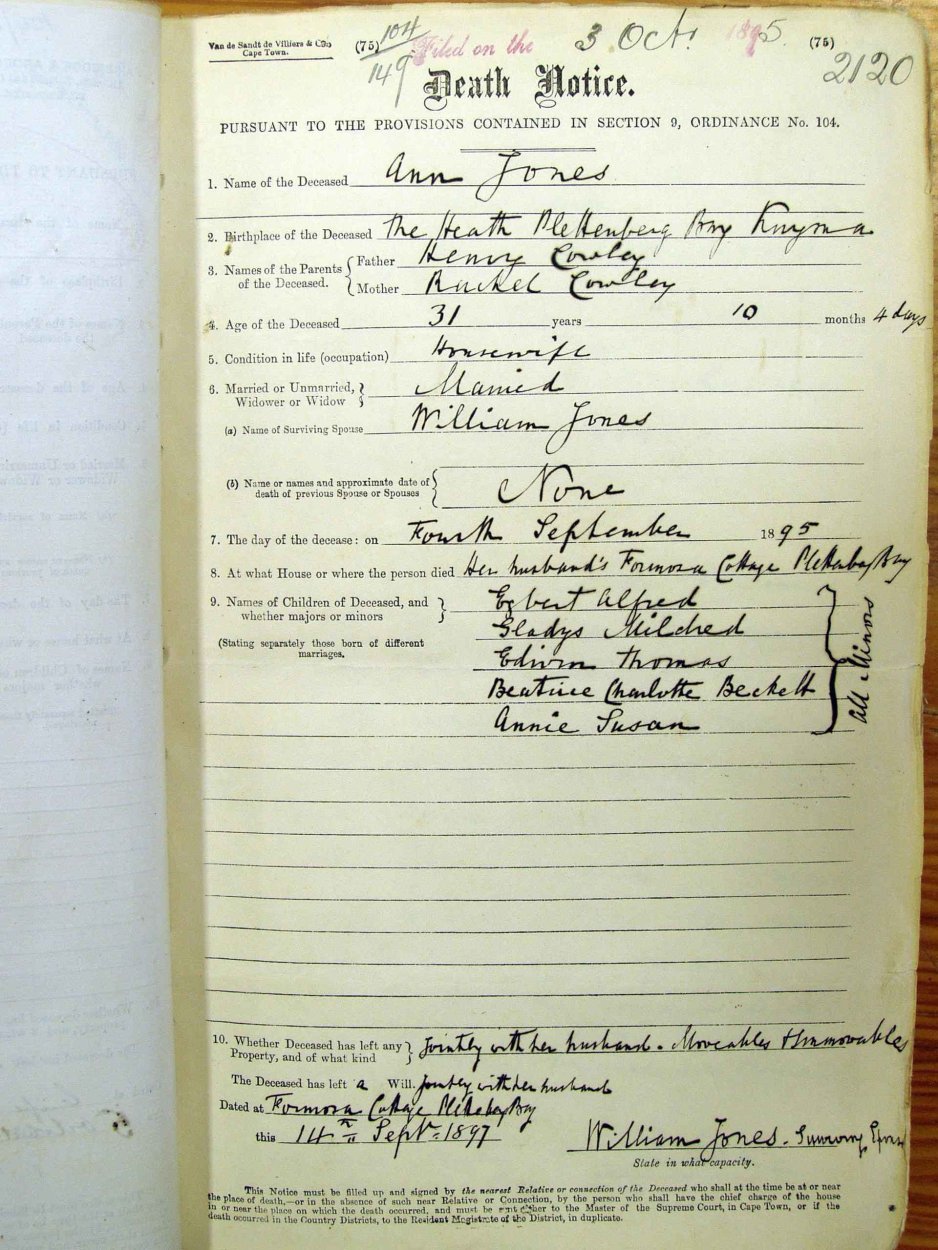 Van de Sandt de Villiers & Co.
Cape Town.
(75)
104/149
Filed on the 3 Oct. 1895.
(75)
2120
Death Notice.
PURSUANT TO THE PROVISIONS CONTAINED IN SECTION 9, ORDINANCE No. 104.
1. Name of the Deceased Ann Jones
2. Birthplace of the Deceased The Heath Plettenberg Bay Knysna
3. Names of the Parents of the Deceased. { Father Henry Cowley
Mother Rachel Cowley
4. Age of the Deceased 31 years 10 months 4 days
5. Condition in life (occupation) Housewife
6. Married or Unmarried, Widower or Widow } Married
(a) Name of Surviving Spouse William Jones
(b) Name or names and approximate date of death of previous Spouse or Spouses { None
7. The day of the decease: on Fourth September 1895
8. At what House or where the person died Her husband's Formosa Cottage Plettenberg Bay
9. Names of Children of Deceased, and whether majors or minors } Egbert Alfred
Gladys Mildred
(Stating separately those born of different marriages.
Edwin Thomas
Beatrice Charlotte Beckett
Annie Susan
All Minors
10. Whether Deceased has left any Property, and of what kind } Jointly with her husband - Moveables & Immovables
The Deceased has left a Will. jointly with her husband
Dated at Formosa Cottage Plettenberg Bay
this 14th Sept. 1897 William Jones - Surviving Spouse
State in what capacity.
This Notice must be filled up and signed by the nearest Relative or connection of the Deceased who shall at the time be at or near
the place of death,—or in the absence of such near Relative or Connection, by the person who shall have the chief charge of the house
in or near the place on which the death occurred, and must be sent either to the Master of the Supreme Court, in Cape Town, or if the
death occurred in the Country Districts, to the Resident Magistrate of the District, in duplicate.